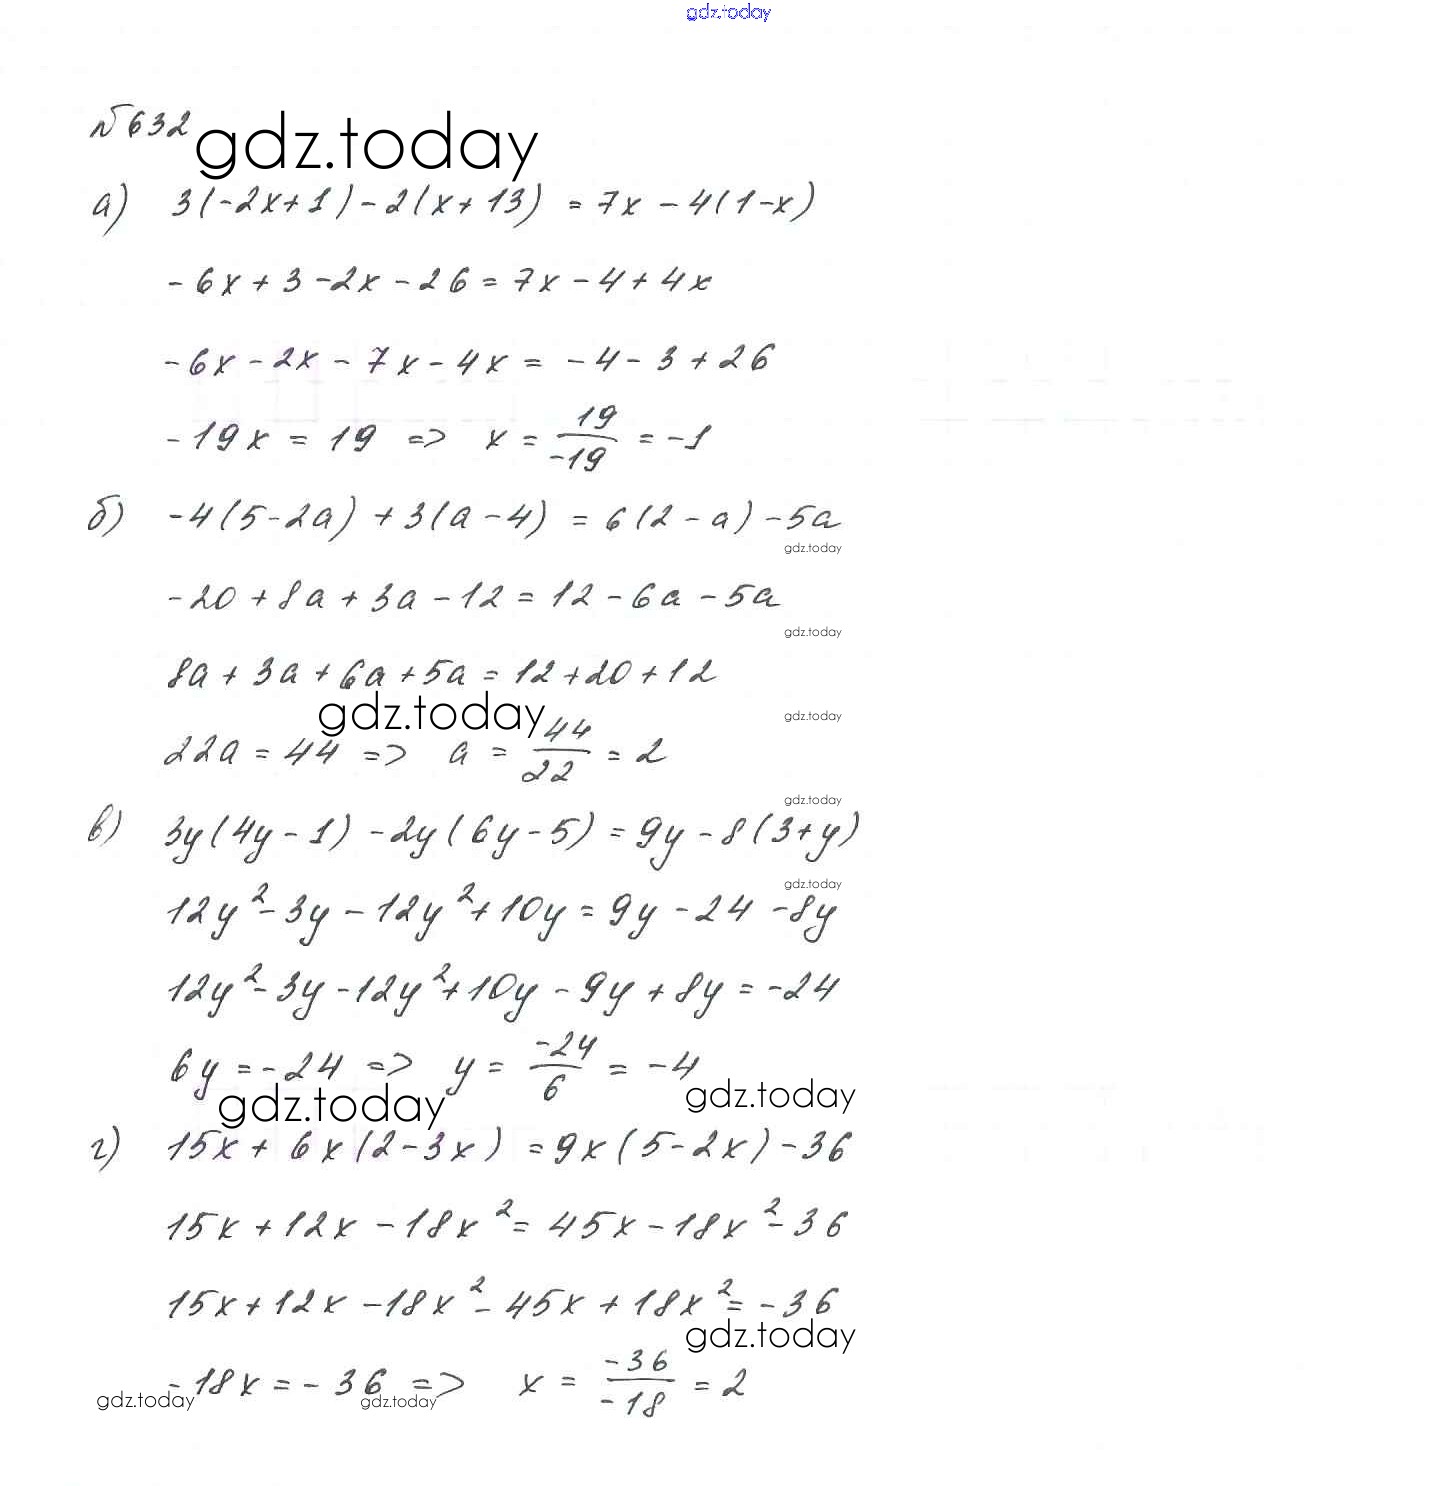 gdz.today
№632
gdz.today
а) 3(-2x+1)-2(x+13) = 7x-4(1-x)
-6x+3-2x-26=7x-4+4x
-6x-2x-7x-4x = -4-3+26
-19x = 19 => x = 19/-19 = -1
б) -4(5-2a)+3(a-4) = 6(2-a)-5a
gdz.today
-20+8a+3a-12=12-6a-5a
gdz.today
8a+3a+6a+5a=12+20+12
gdz.today
gdz.today
22a=44 => a = 44/22 = 2
gdz.today
в) 3y(4y-1)-2y(6y-5)=9y-8(3+y)
gdz.today
12y²-3y-12y²+10y=9y-24-8y
12y²-3y-12y²+10y-9y+8y=-24
6y=-24 => y = -24/6 = -4
gdz.today
gdz.today
г) 15x+6x(2-3x) =9x(5-2x)-36
15x+12x-18x²=45x-18x²-36
15x+12x-18x²-45x+18x²=-36
gdz.today
-18x=-36 => x = -36/-18 = 2
gdz.today
gdz.today